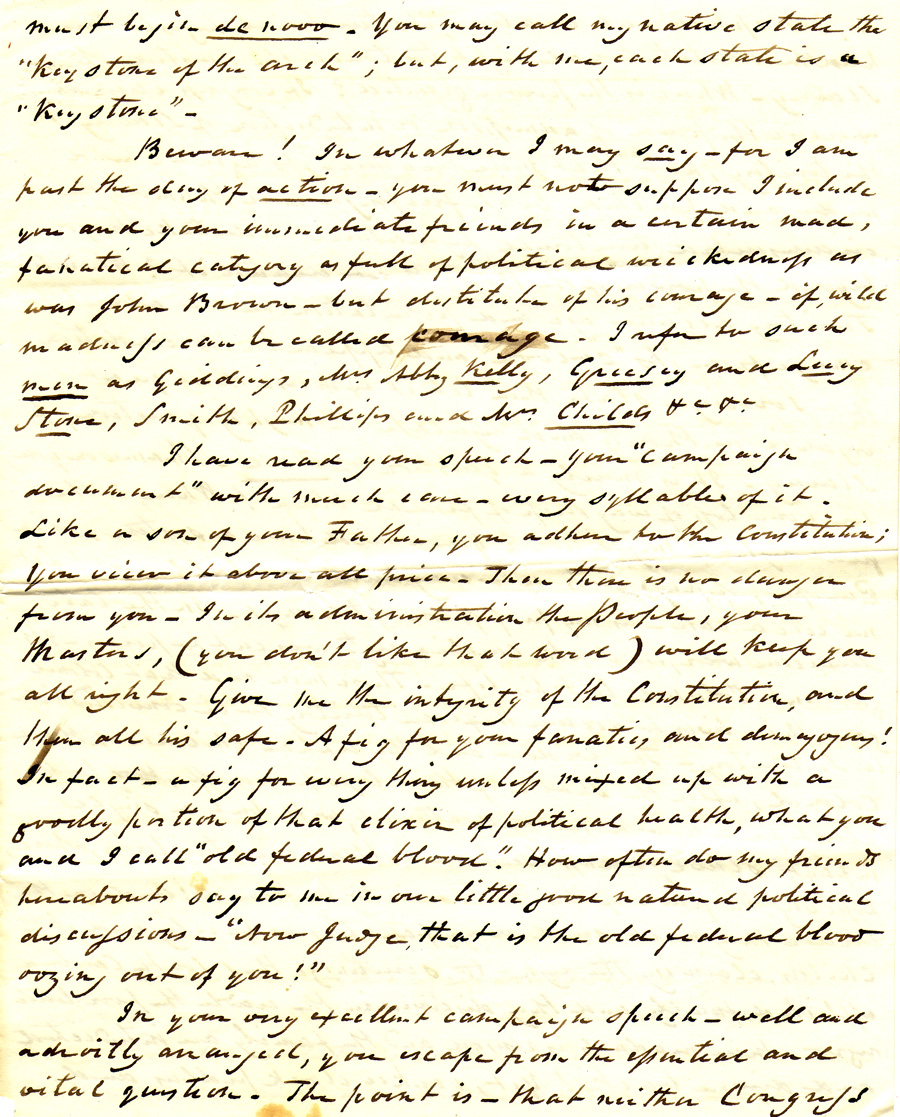 must begin de novo. You may call my native state the
"Key stone of the arch"; but, with me, each state is a
"Keystone" -
Beware! In whatever I may say - for I am
past the day of action - you must not suppose I include
you and your immediate friends in a certain mad,
fanatical category as full of political wickedness as
was John Brown - but destitute of his courage - if, wild
madness can be called courage. I refer to such
men as Giddings, Mrs Abby Kelly, Greesey and Lucy
Stone, Smith, Phillips and Mrs. Childs &c. &c
I have read your speech - your "campaign
document" with much care - every syllable of it.
Like a son of your Father, you adhere to the Constitution;
You view it above all price. Then there is no danger
from you - In its administration the People, your
Masters, (you don't like that word) will keep you
all right. Give me the integrity of the Constitution, and
then all his safe. A fig for your fanatics and demagogues!
In fact - a fig for every thing unless mixed up with a
goodly portion of that elixir of political health, what you
and I call "old federal blood". How often do my friends
hereabouts say to me in our little good natured political
discussions - "Now Judge, that is the old federal blood
oozing out of you!"
In your very excellent campaign speech - well and
adroitly arranged, you escape from the essential and
vital question. The point is - that neither Congress